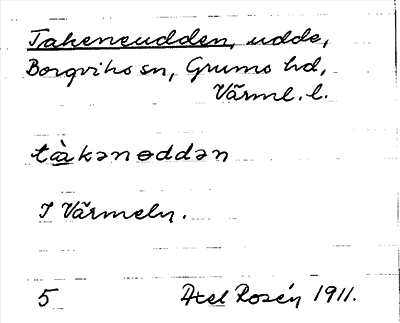 Takeneudden, udde,
Borgviks sn, Grums hd,
Värml. l.
tàkənɵddən
I Värmeln.
5 Axel Rosén 1911.